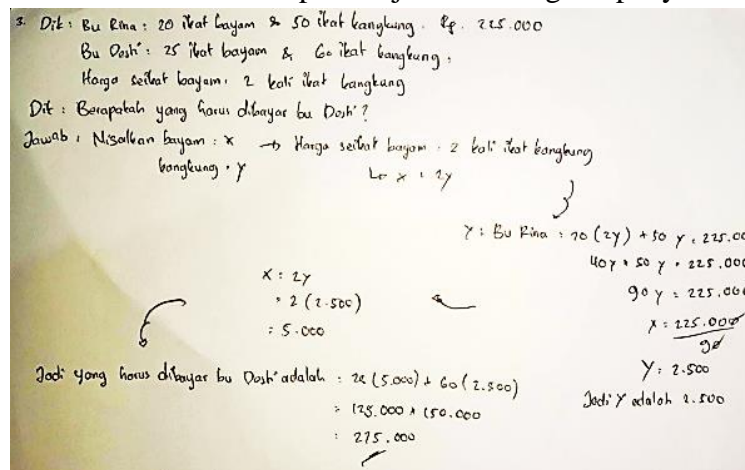 3. Dik : Bu Rina : 20 ikat bayam & 50 ikat kangkung . Rp. 225.000
Bu Dosh' : 25 ikat bayam & 60 ikat kangkung .
Harga seikat bayam : 2 kali ikat kangkung
Dit : Berapakah yang harus dibayar bu Dosh' ?
Jawab : Misalkan bayam : x → Harga seikat bayam . 2 kali ikat kangkung
kangkung . y
↳ x : 2y
Y : Bu Rina : 20 (2y) + 50 y . 225.000
40y + 50 y . 225.000
90 y : 225.000
x : 225.000
90
Y : 2.500
Jadi Y adalah 2.500
x : 2y
: 2 (2.500)
: 5.000
Jadi yang harus dibayar bu Dosh' adalah : 25 (5.000) + 60 (2.500)
: 125.000 + 150.000
: 275.000